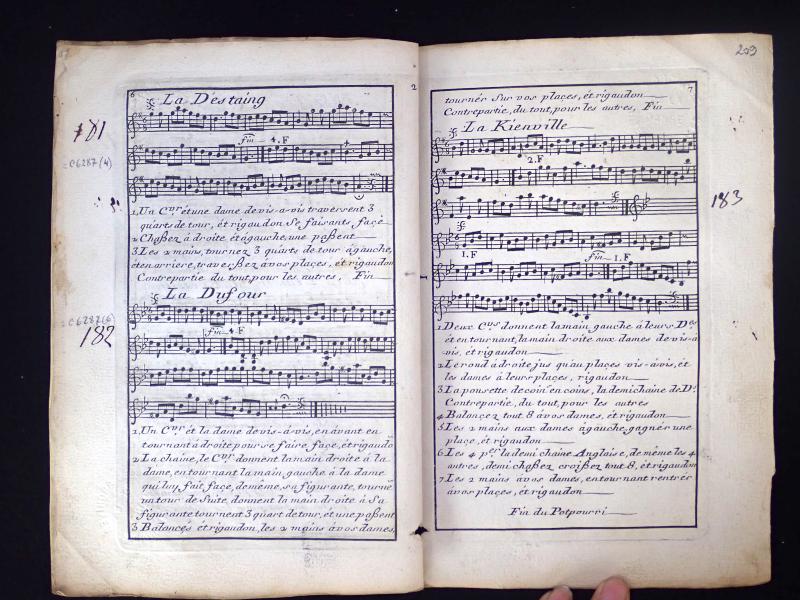 6
La D'estaing
181
fin 4. F
= C6287 (4)
1 Un Cur et une dame de vis-a-vis traversent 3
quarts de tour, et rigaudon Se faisants façe
2 Chaßez à droite et agauche, une paßent
3 Les 2 mains, tournez 3 quarts de tour àgauche,
et en arriere, traverßez àvos plaçes, et rigaudon
Contrepartie du tout, pour les autres, Fin
La Dufour
= C6287 (6)
182
fin 4. F
1 Un Cur et la dame de vis-à-vis, en avant en
tournant à droite pour se faire façe, et rigaudo
2 La chaîne, le Cur donnent la main droite à la
dame, en tournant la main gauche à la dame
qui luy fait façe, de même, sa figurante, tourne
un tour de Suite, donnent la main droite à Sa
figurante tournent 3 quart de tour, et une paßent
3 Balançés et rigaudon, les 2 mains à vos dames,
2
1
209
7
tournér Sur vos plaçes, et rigaudon
Contrepartie, du tout, pour les autres, Fin
La Kienville
2. F
183
1. F
fin 1. F
1 Deux Curs donnent la main gauche à leurs Des
et en tournant, la main droite aux dames de vis-a
-vis, et rigaudon
2 Le rond à droite jus qu'au plaçes vis-à-vis, et
les dames à leurs plaçes, rigaudon
3 La pousette de coin en coins, la demi chaine de Ds
Contrepartie, du tout, pour les autres
4 Balançez tout 8 à vos dames, et rigaudon
5 Les 2 mains aux dames àgauche, gagnér une
plaçe, et rigaudon
6 Les 4 pers la demi chaîne Anglaise, de même les 4
autres, demi chaßez croißez tout 8, et rigaudon
7 Les 2 mains àvos dames, en tournant rentrér
àvos plaçes, et rigaudon
Fin du Potpourri